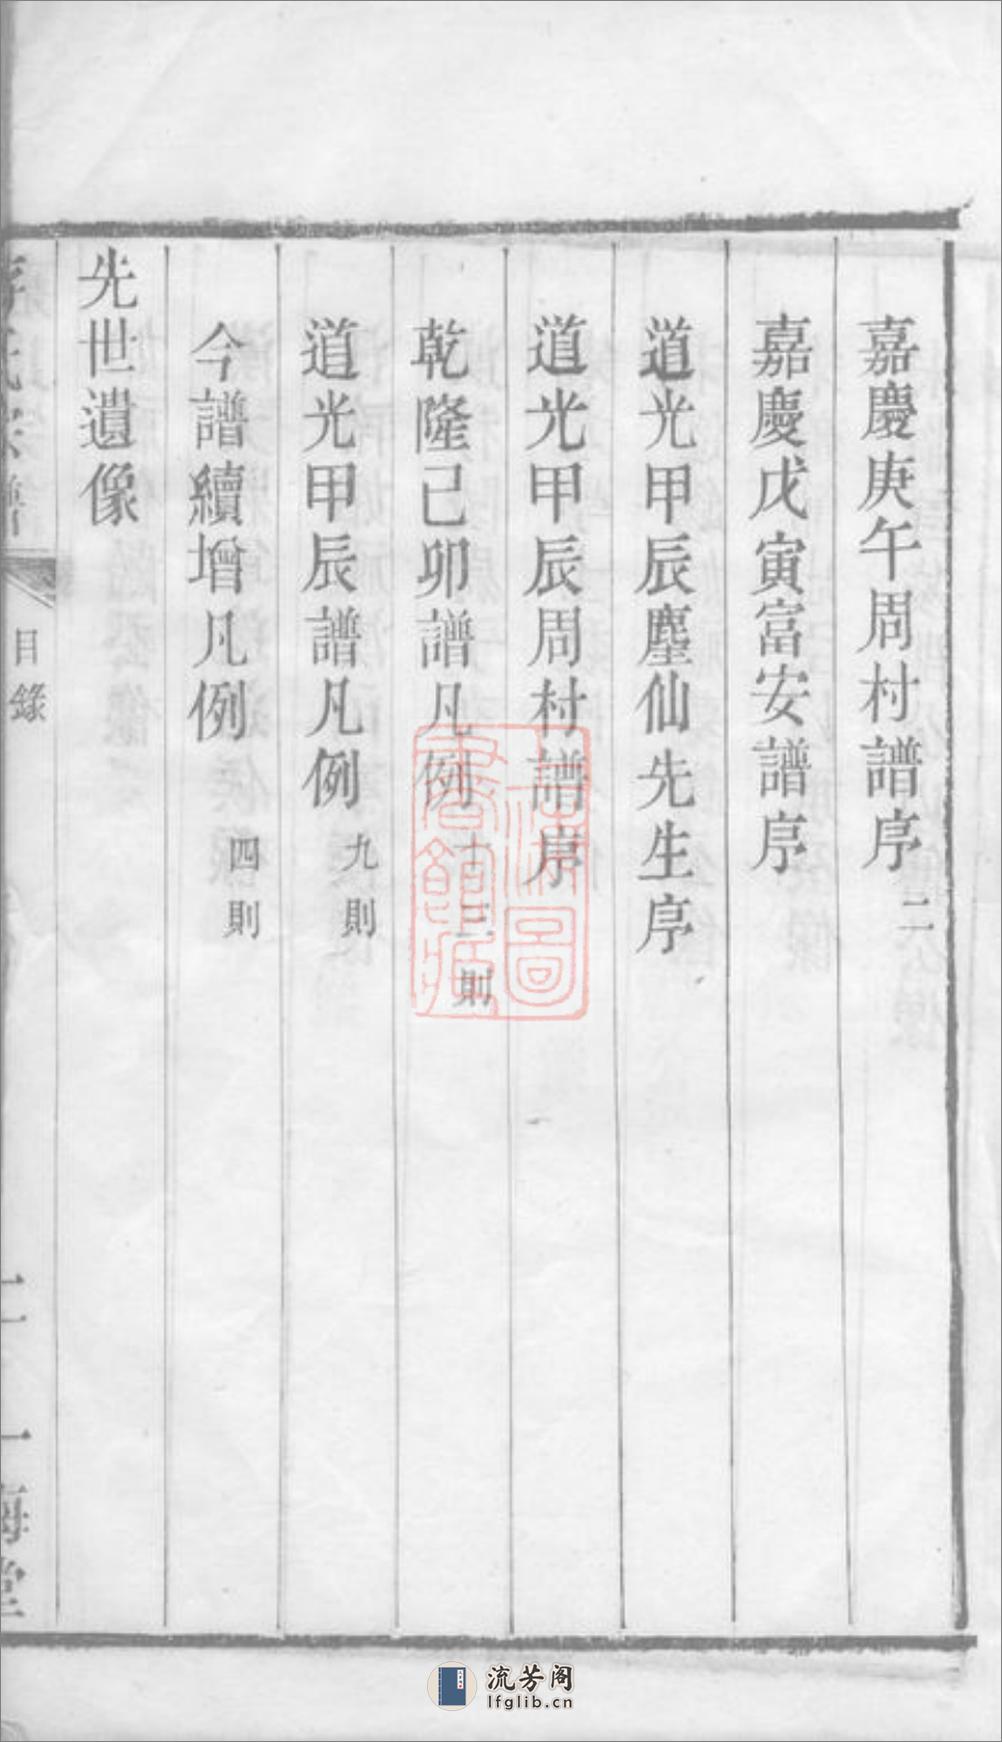 嘉慶庚午周村譜序 二
嘉慶戊寅富安譜序
道光甲辰塵仙先生序
道光甲辰周村譜序
乾隆己卯譜凡例 十三則
道光甲辰譜凡例 九則
今譜續增凡例 四則
先世遺像
目錄
流芳阁
lfglib.cn